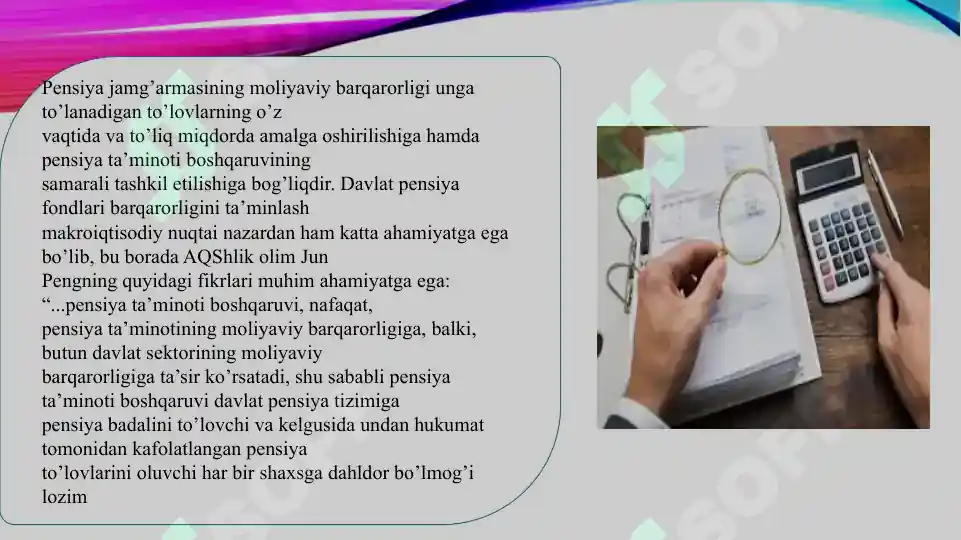 Pensiya jamg’armasining moliyaviy barqarorligi unga
to’lanadigan to’lovlarning o’z
vaqtida va to’liq miqdorda amalga oshirilishiga hamda
pensiya ta’minoti boshqaruvining
samarali tashkil etilishiga bog’liqdir. Davlat pensiya
fondlari barqarorligini ta’minlash
makroiqtisodiy nuqtai nazardan ham katta ahamiyatga ega
bo’lib, bu borada AQShlik olim Jun
Pengning quyidagi fikrlari muhim ahamiyatga ega:
“...pensiya ta’minoti boshqaruvi, nafaqat,
pensiya ta’minotining moliyaviy barqarorligiga, balki,
butun davlat sektorining moliyaviy
barqarorligiga ta’sir ko’rsatadi, shu sababli pensiya
ta’minoti boshqaruvi davlat pensiya tizimiga
pensiya badalini to’lovchi va kelgusida undan hukumat
tomonidan kafolatlangan pensiya
to’lovlarini oluvchi har bir shaxsga dahldor bo’lmog’i
lozim